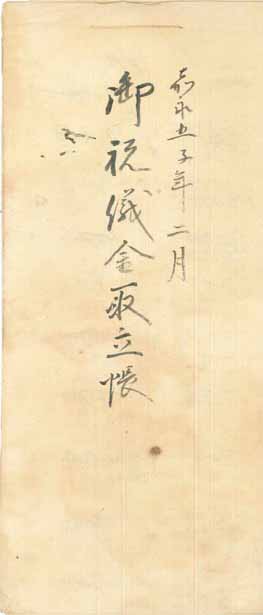 嘉永五子年二月
御祝儀金取立帳